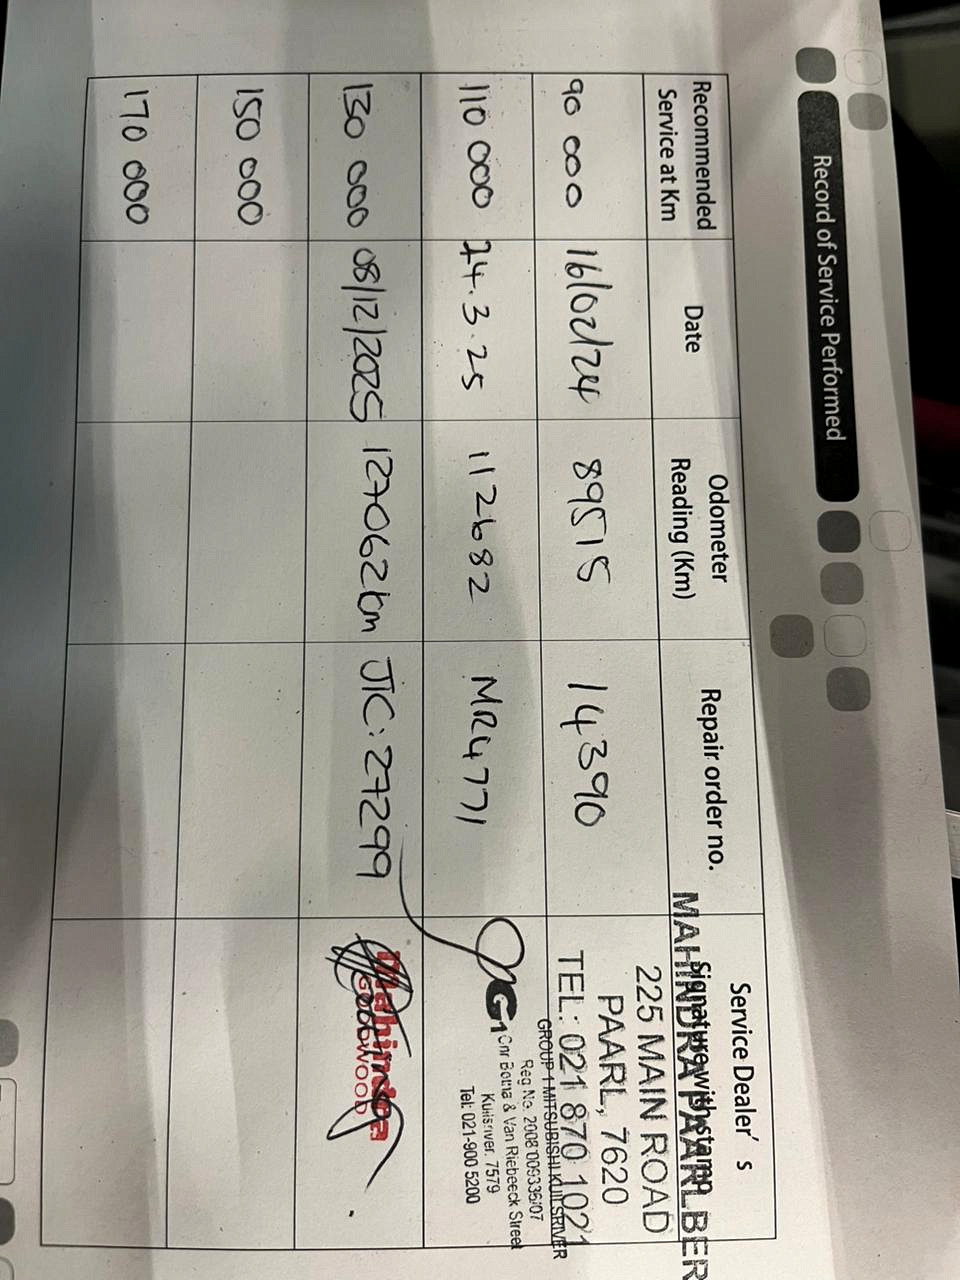 Record of Service Performed
Recommended Service at Km
Date
Odometer Reading (Km)
Repair order no.
Service Dealer's Signature with stamp
90 000
16/02/24
89515
14390
MAHINDRA PAARL BER
225 MAIN ROAD
PAARL, 7620
TEL: 021 870 1021
110 000
24.3.25
112682
MR4771
G1
GROUP 1 MITSUBISHI KUILSRIVER
Reg No. 2008/009336/07
Cnr Botha & Van Riebeeck Street
Kuilsriver. 7579
Tel: 021-900 5200
130 000
08/12/2025
127062km
JIC:27299
Mahindra
GOODWOOD
150 000
170 000